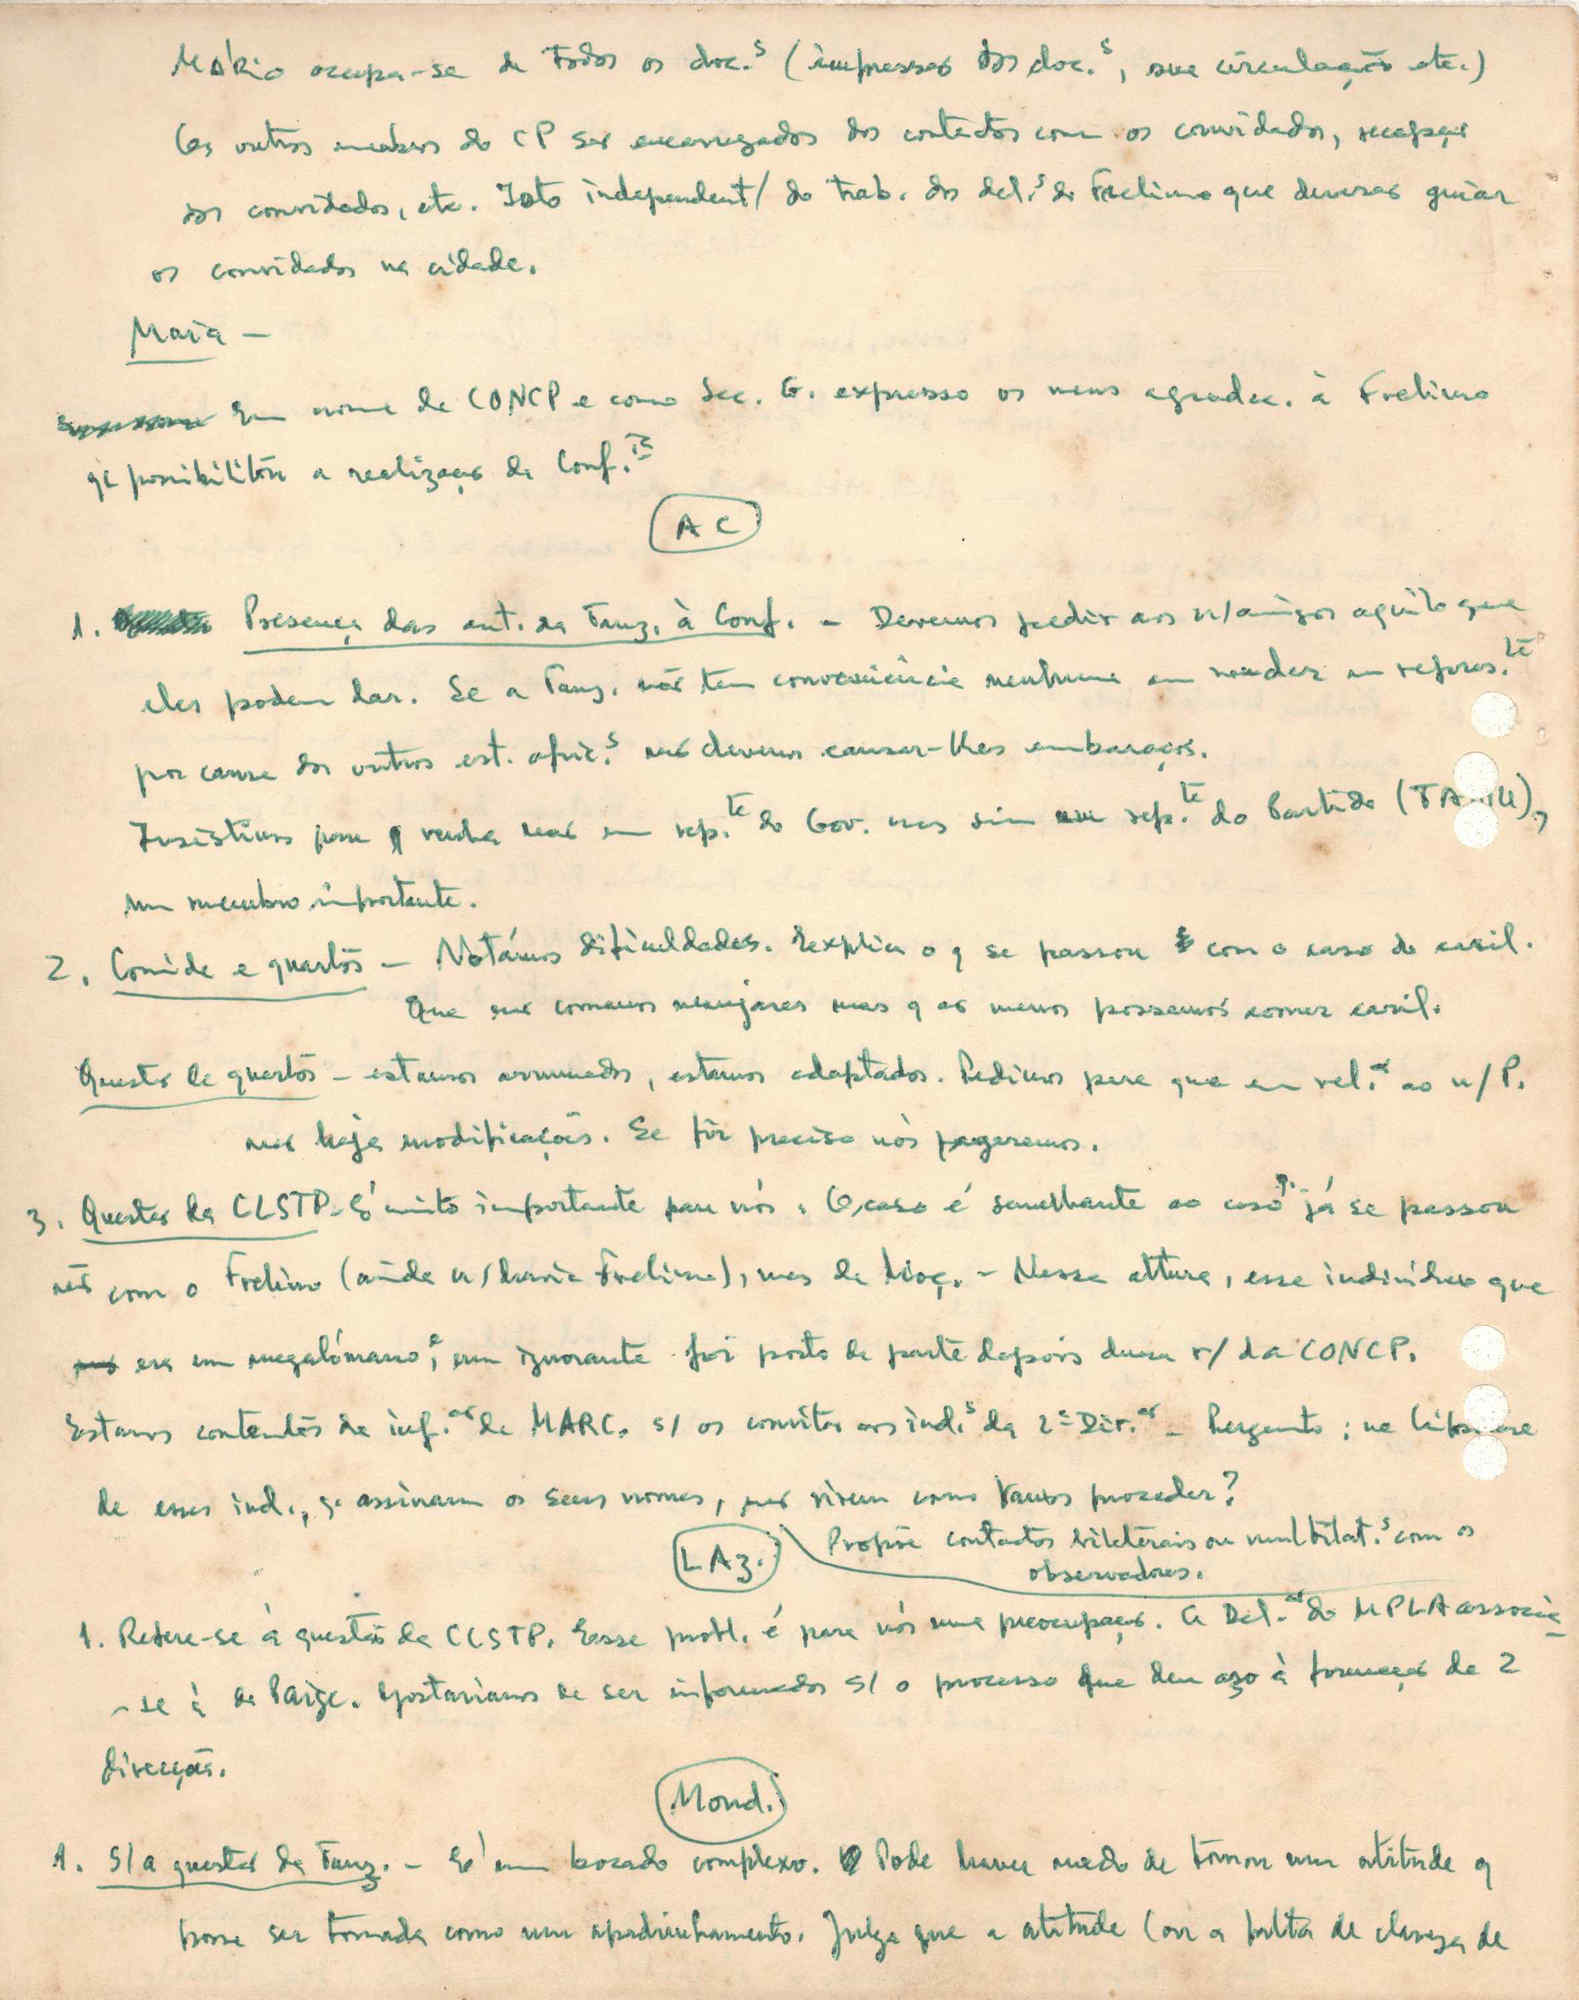 Mário ocupa-se de todos os doc.s (impressão dos doc.s, sua circulação etc.)
Os outros membros do CP são encarregados dos contactos com os convidados, recepção
dos convidados, etc. Isto independent/ do trab. dos del.s da Frelimo que deverão guiar
os convidados na cidade.
Maria -
Em nome da CONCP e como Sec. G. expresso os meus agradec. à Frelimo
q. possibilitou a realização da Conf.ia
AC
1. Presença das aut. da Tanz. à Conf. - Devemos pedir aos n/amigos aquilo que
eles podem dar. Se a Tanz. não tem conveniência nenhuma em mandar um repres.te
por causa dos outros est. afric.s não devemos causar-lhes embaraços.
Insistimos para q venha não um rep.te do Gov. mas sim um rep.te do Partido (TANU),
um membro importante.
2. Comida e quartos - Notámos dificuldades. Explica o q se passou com o caso do caril.
Que não comamos manjares mas q ao menos possamos comer caril.
Questão de quartos - estamos arrumados, estamos adaptados. Pedimos para que em rel.ão ao n/P.
não haja modificações. Se fôr preciso nós pagaremos.
3. Questão da CLSTP - É muito importante para nós. O caso é semelhante ao caso q. já se passou
não com o Frelimo (ainda n/havia Frelimo), mas de Moç. - Nessa altura, esse indivíduo que
era um megalómano, e um ignorante foi posto de parte depois duma r/ da CONCP.
Estamos contentes da inf.ão de MARC. s/ os convites aos ind.s da 2ª Dir.ão - Pergunto: na hipótese
de esses ind., q. assinam os seus nomes, não virem como vamos proceder?
Propõe contactos bilaterais ou multilat.s com os
observadores.
LAz.
1. Refere-se à questão da CLSTP. Esse probl. é para nós uma preocupação. A Del.ão do MPLA associa
-se à do Paigc. Gostaríamos de ser informados s/ o processo que deu azo à formação de 2
direcções.
Mond.
1. S/a questão da Tanz. - É um bocado complexo. Pode haver medo de tomar uma atitude q
possa ser tomada como um apadrinhamento. Julga que a atitude (ou a falta de clareza de